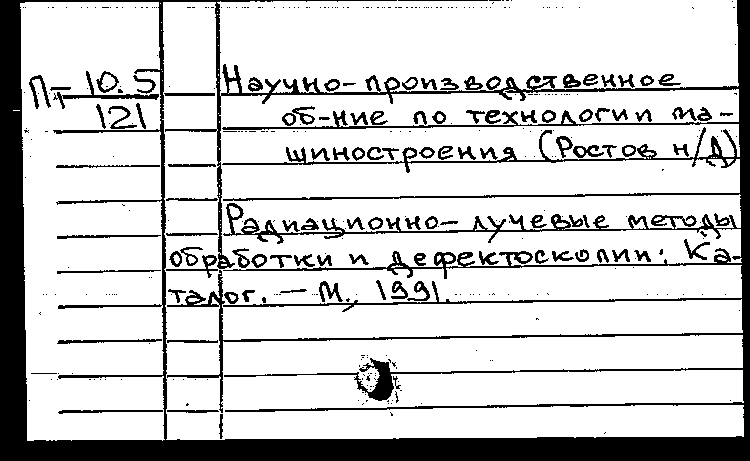 Пт 10.5
121
Научно-производственное
об-ние по технологии ма-
шиностроения (Ростов н/Д)
Радиационно-лучевые методы
обработки и дефектоскопии: Ка-
талог. — М., 1991.